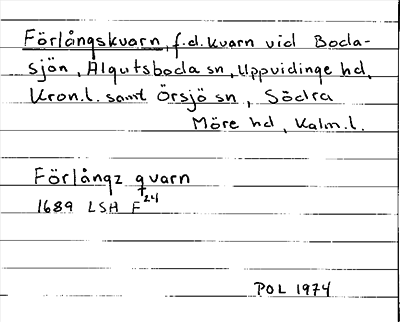 Förlångskvarn, f.d. kvarn vid Boda-
sjön, Älgutsboda sn, Uppvidinge hd,
Kron.l. samt Örsjö sn, Södra
Möre hd, Kalm.l.
Förlångz qvarn
1689 LSH F24
POL 1974